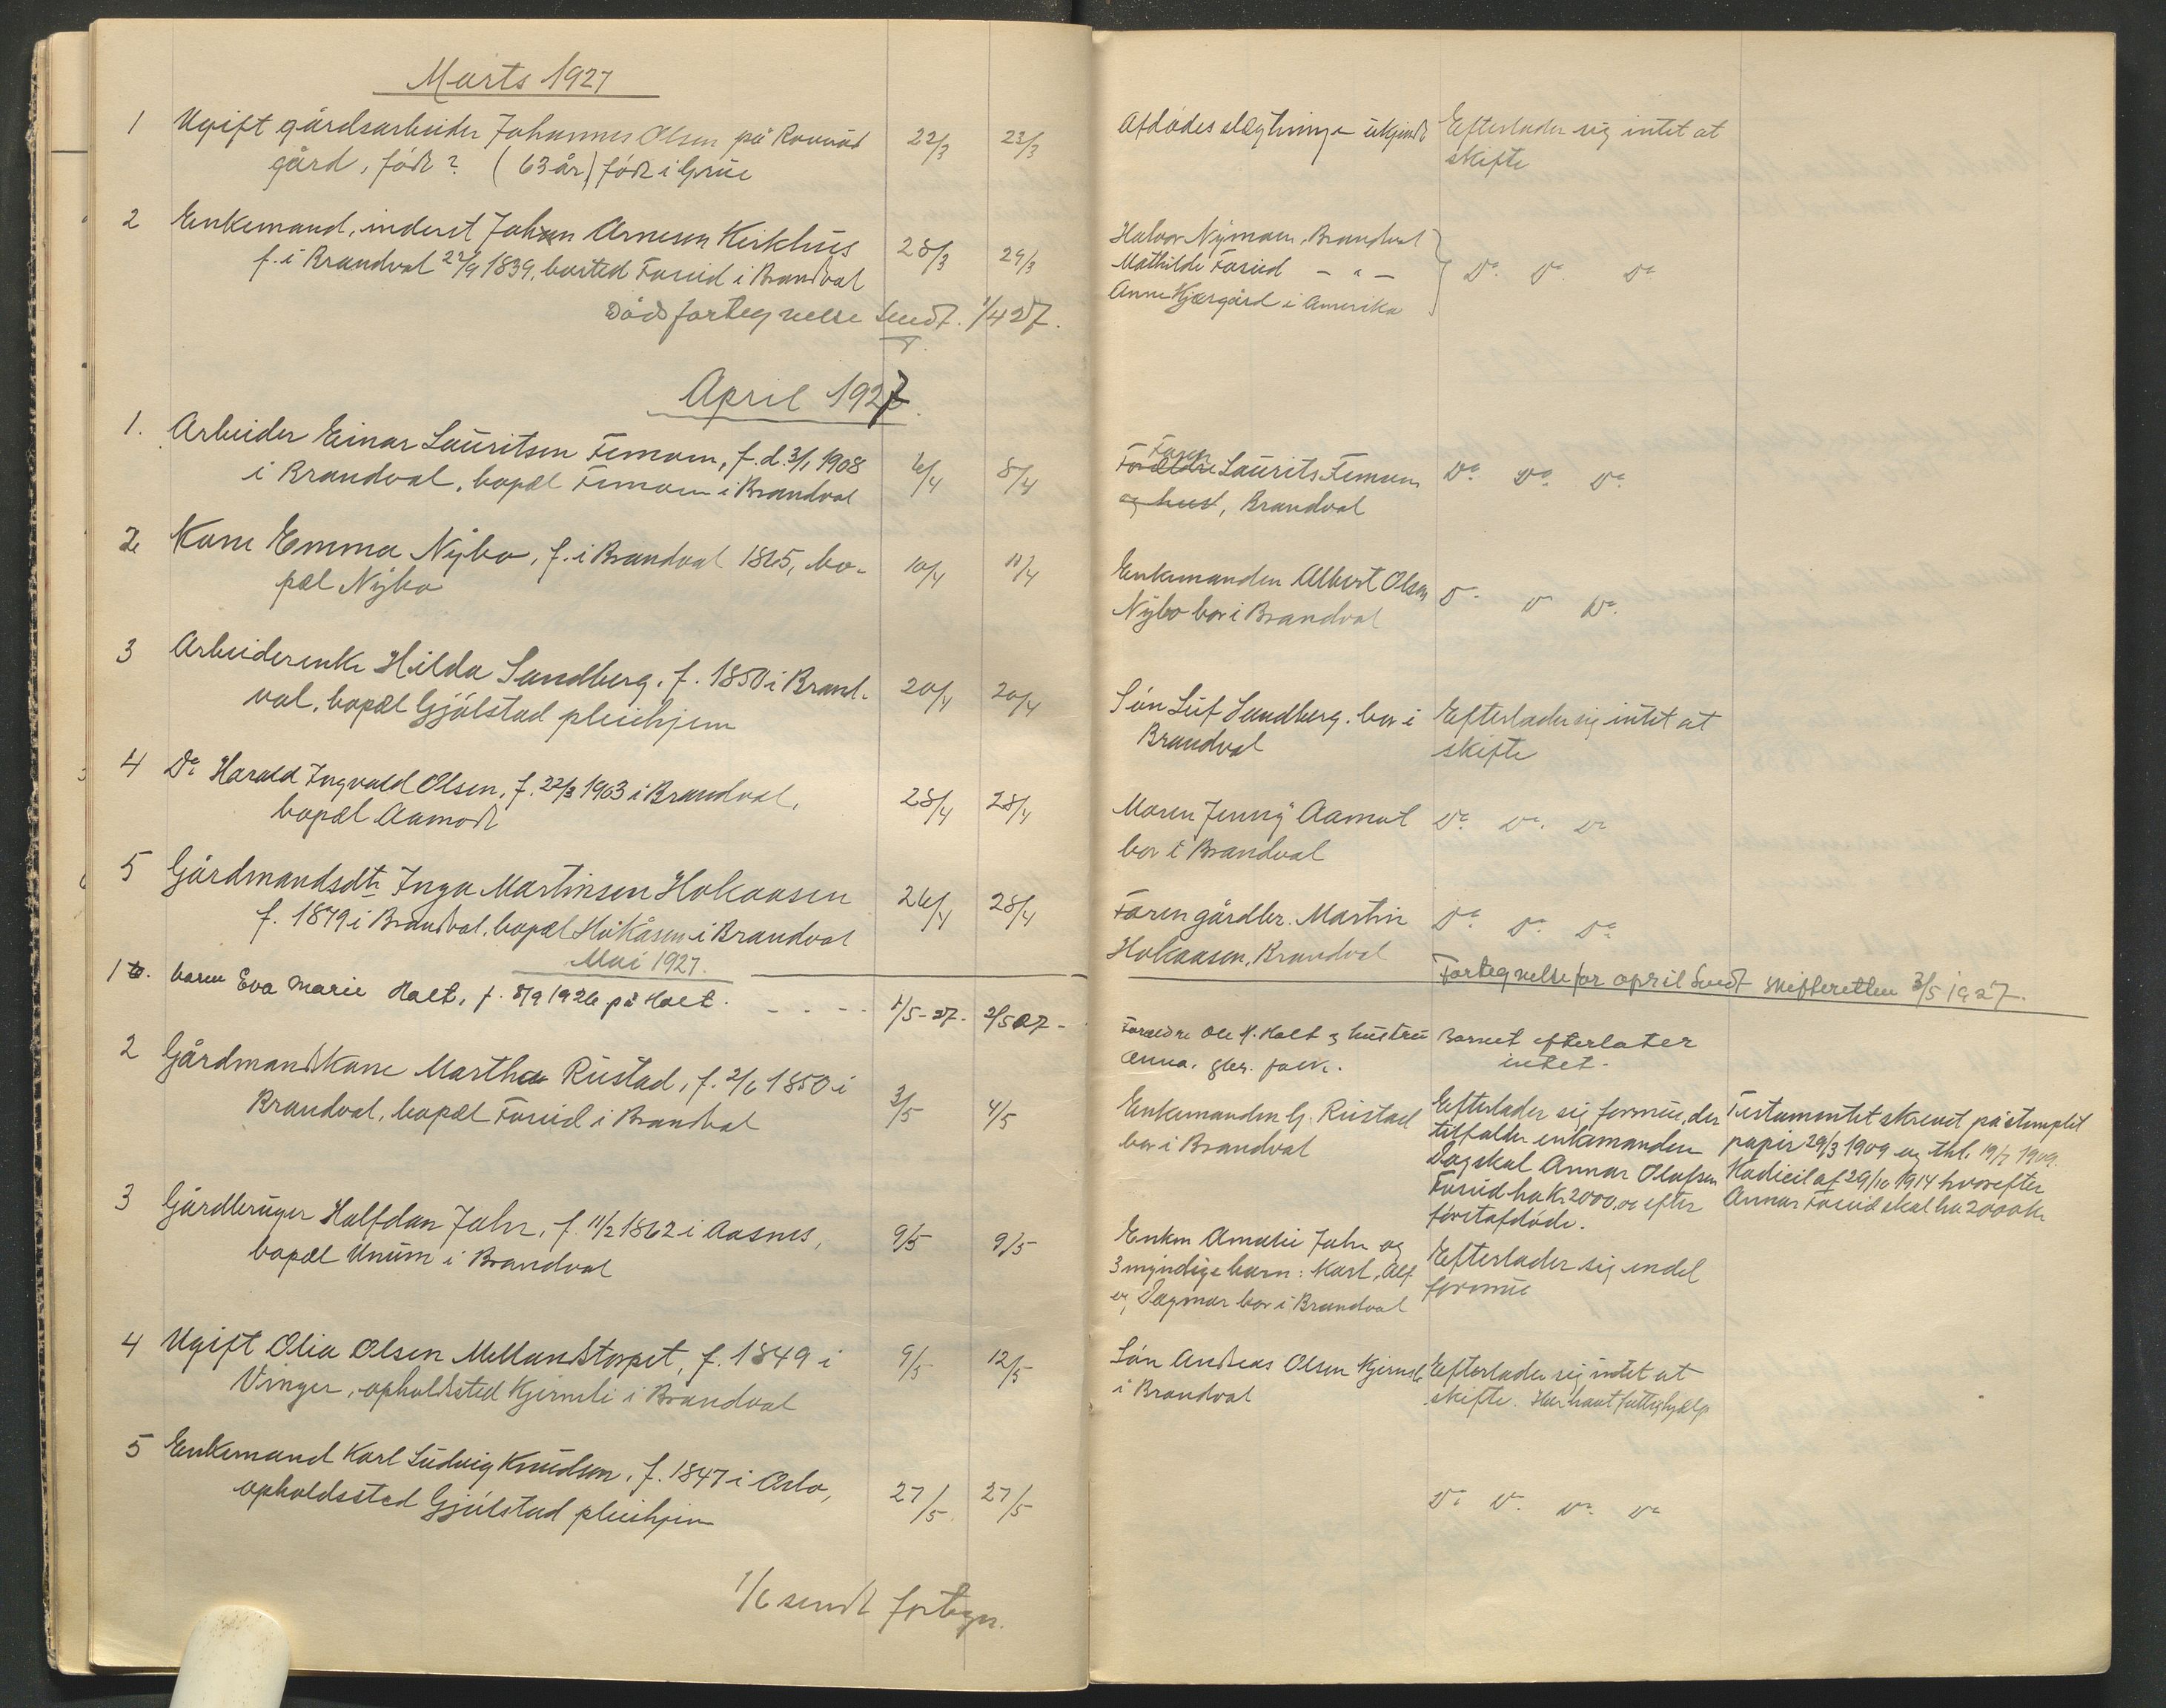 Marts 1927
1 Ugift gårdsarbeider Johannes Olsen på
22/3 23/3
gård, födt? (63 år) födt i Grue
2 Enkemand, inderst Johan Arnesen Kirkhus
28/3 29/3
f. i Brandval 22/9 1839, bosted Forud i Brandval
Dödsfortegnelse sendt. 1/4 27.
April 1927.
1. Arbeider Einar Lauritsen Femoen, f. d. 3/1 1908
6/4 8/4
i Brandval, bopæl Femoen i Brandval
2 Kone Emma Nybo, f. i Brandval 1865, bo-
10/4 11/4
pæl Nybo
3 Arbeiderenke Hilda Sundberg. f. 1850 i Brand-
20/4 20/4
val, bopæl Gjölstad pleiehjem
4 Do. Harald Ingvald Olsen, f. 22/3 1903 i Brandval,
28/4 28/4
bopæl Aamodt
5 Gårdmandsdtr Inga Martinsen Hokaasen
26/4 28/4
f. 1879 i Brandval, bopæl Hokåsen i Brandval
Mai 1927.
1 barn Eva Marie Holt, f. 8/9 1926 på Holt. - - - -
1/5-27. 2/5 27-
2 Gårdmandskone Martha Rustad, f. 2/6 1850 i
3/5 4/5
Brandval, bopæl Forud i Brandval
3 Gårdbruger Halfdan Jahr, f. 11/2 1862 i Aasnes,
9/5 9/5
bopæl Unum i Brandval
4 Ugift Olia Olsen Mellandstorpet, f. 1849 i
9/5 12/5
Vinger, opholdsted Kjernsli i Brandval
5 Enkemand Karl Ludvig Knudsen, f. 1847 i Oslo,
27/5. 27/5
opholdssted Gjölstad pleiehjem
1/6 sendt fortegn.
Afdödes slægtninge ukjendt
Efterlader sig intet at
skifte
Halvor Nymoen, Brandval
Mathilde Forud - " -
Do. Do. Do.
Anne Kjærgård i Amerika
Faren
Forældre Laurits Femoen
Do. Do. Do.
og hust, Brandval
Enkemanden Albert Olsen
Do. Do. Do.
Nybo bor i Brandval
Sön Leif Sundberg. bor i
Efterlader sig intet at
Brandval
skifte
Moren Jenny Aamot
Do. Do. Do
bor i Brandval
Faren gårdbr. Martin
Do. Do. Do.
Hokaasen, Brandval
Fortegnelse for april sendt skifteretten 3/5 1927.
Forældre Ole H. Holt & hustru
Barnet efterlater
Anna. gbr. folk.
intet.
Enkemanden G. Rustad
bor i Brandval
Efterlader sig formue, der
tilfalder enkemanden
Dog skal Annar Olafsen
Forud ha Kr. 2000,00 efter
förstafdöde.
Testamentet skrevet på stemplet
papir 29/3 1909 og thl. 19/7 1909.
Kodicil af 29/10 1914 hvorefter
Annar Forud skal ha 2000 kr
Enken Amalie Jahr og
3 myndige barn: Karl, Alf
og Dagmar bor i Brandval
Efterlader sig endel
formue
Sön Andreas Olsen Kjernsli
i Brandval
Efterlader sig intet at
skifte. Har havt fattighjælp
Do. Do. Do. Do